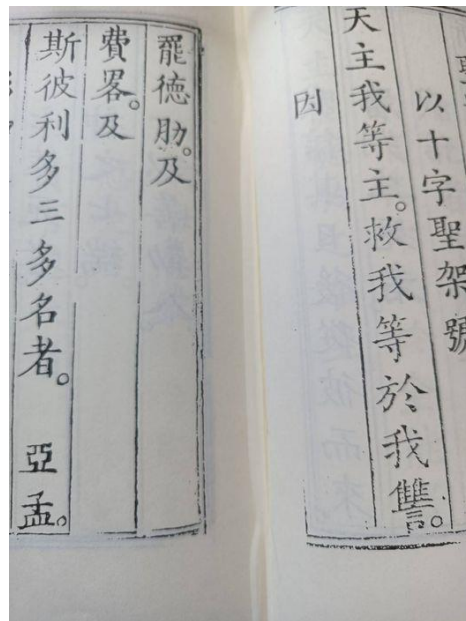 以十字聖架號
天主我等主。救我等於我讐。
因
罷德肋。及
費畧。及
斯彼利多三多名者。 亞孟。